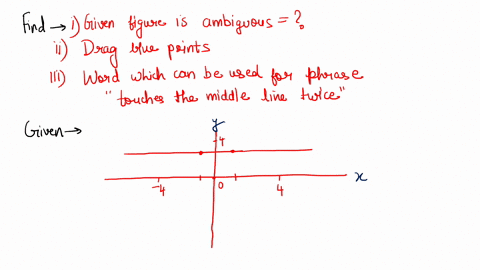 Find → i) Given figure is ambiguous = ?
ii) Drag blue points
iii) Word which can be used for phrase
"touches the middle line twice"
Given →
y
4
-4
0
4
x